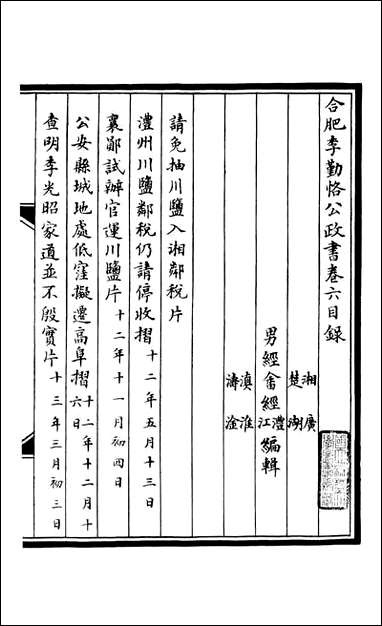 合肥李勤恪公政書卷六目錄
湖廣
楚湘
男經畬經江灃編輯
滇淮
濤淦
請免抽川鹽入湘鄰稅片
灃州川鹽鄰稅仍請停收摺 十二年五月十三日
襄鄖試辦官運川鹽片 十二年十一月初四日
公安縣城地處低窪擬遷高阜摺 十二年十二月十六日
查明李光昭家道並不殷實片 十三年三月初三日